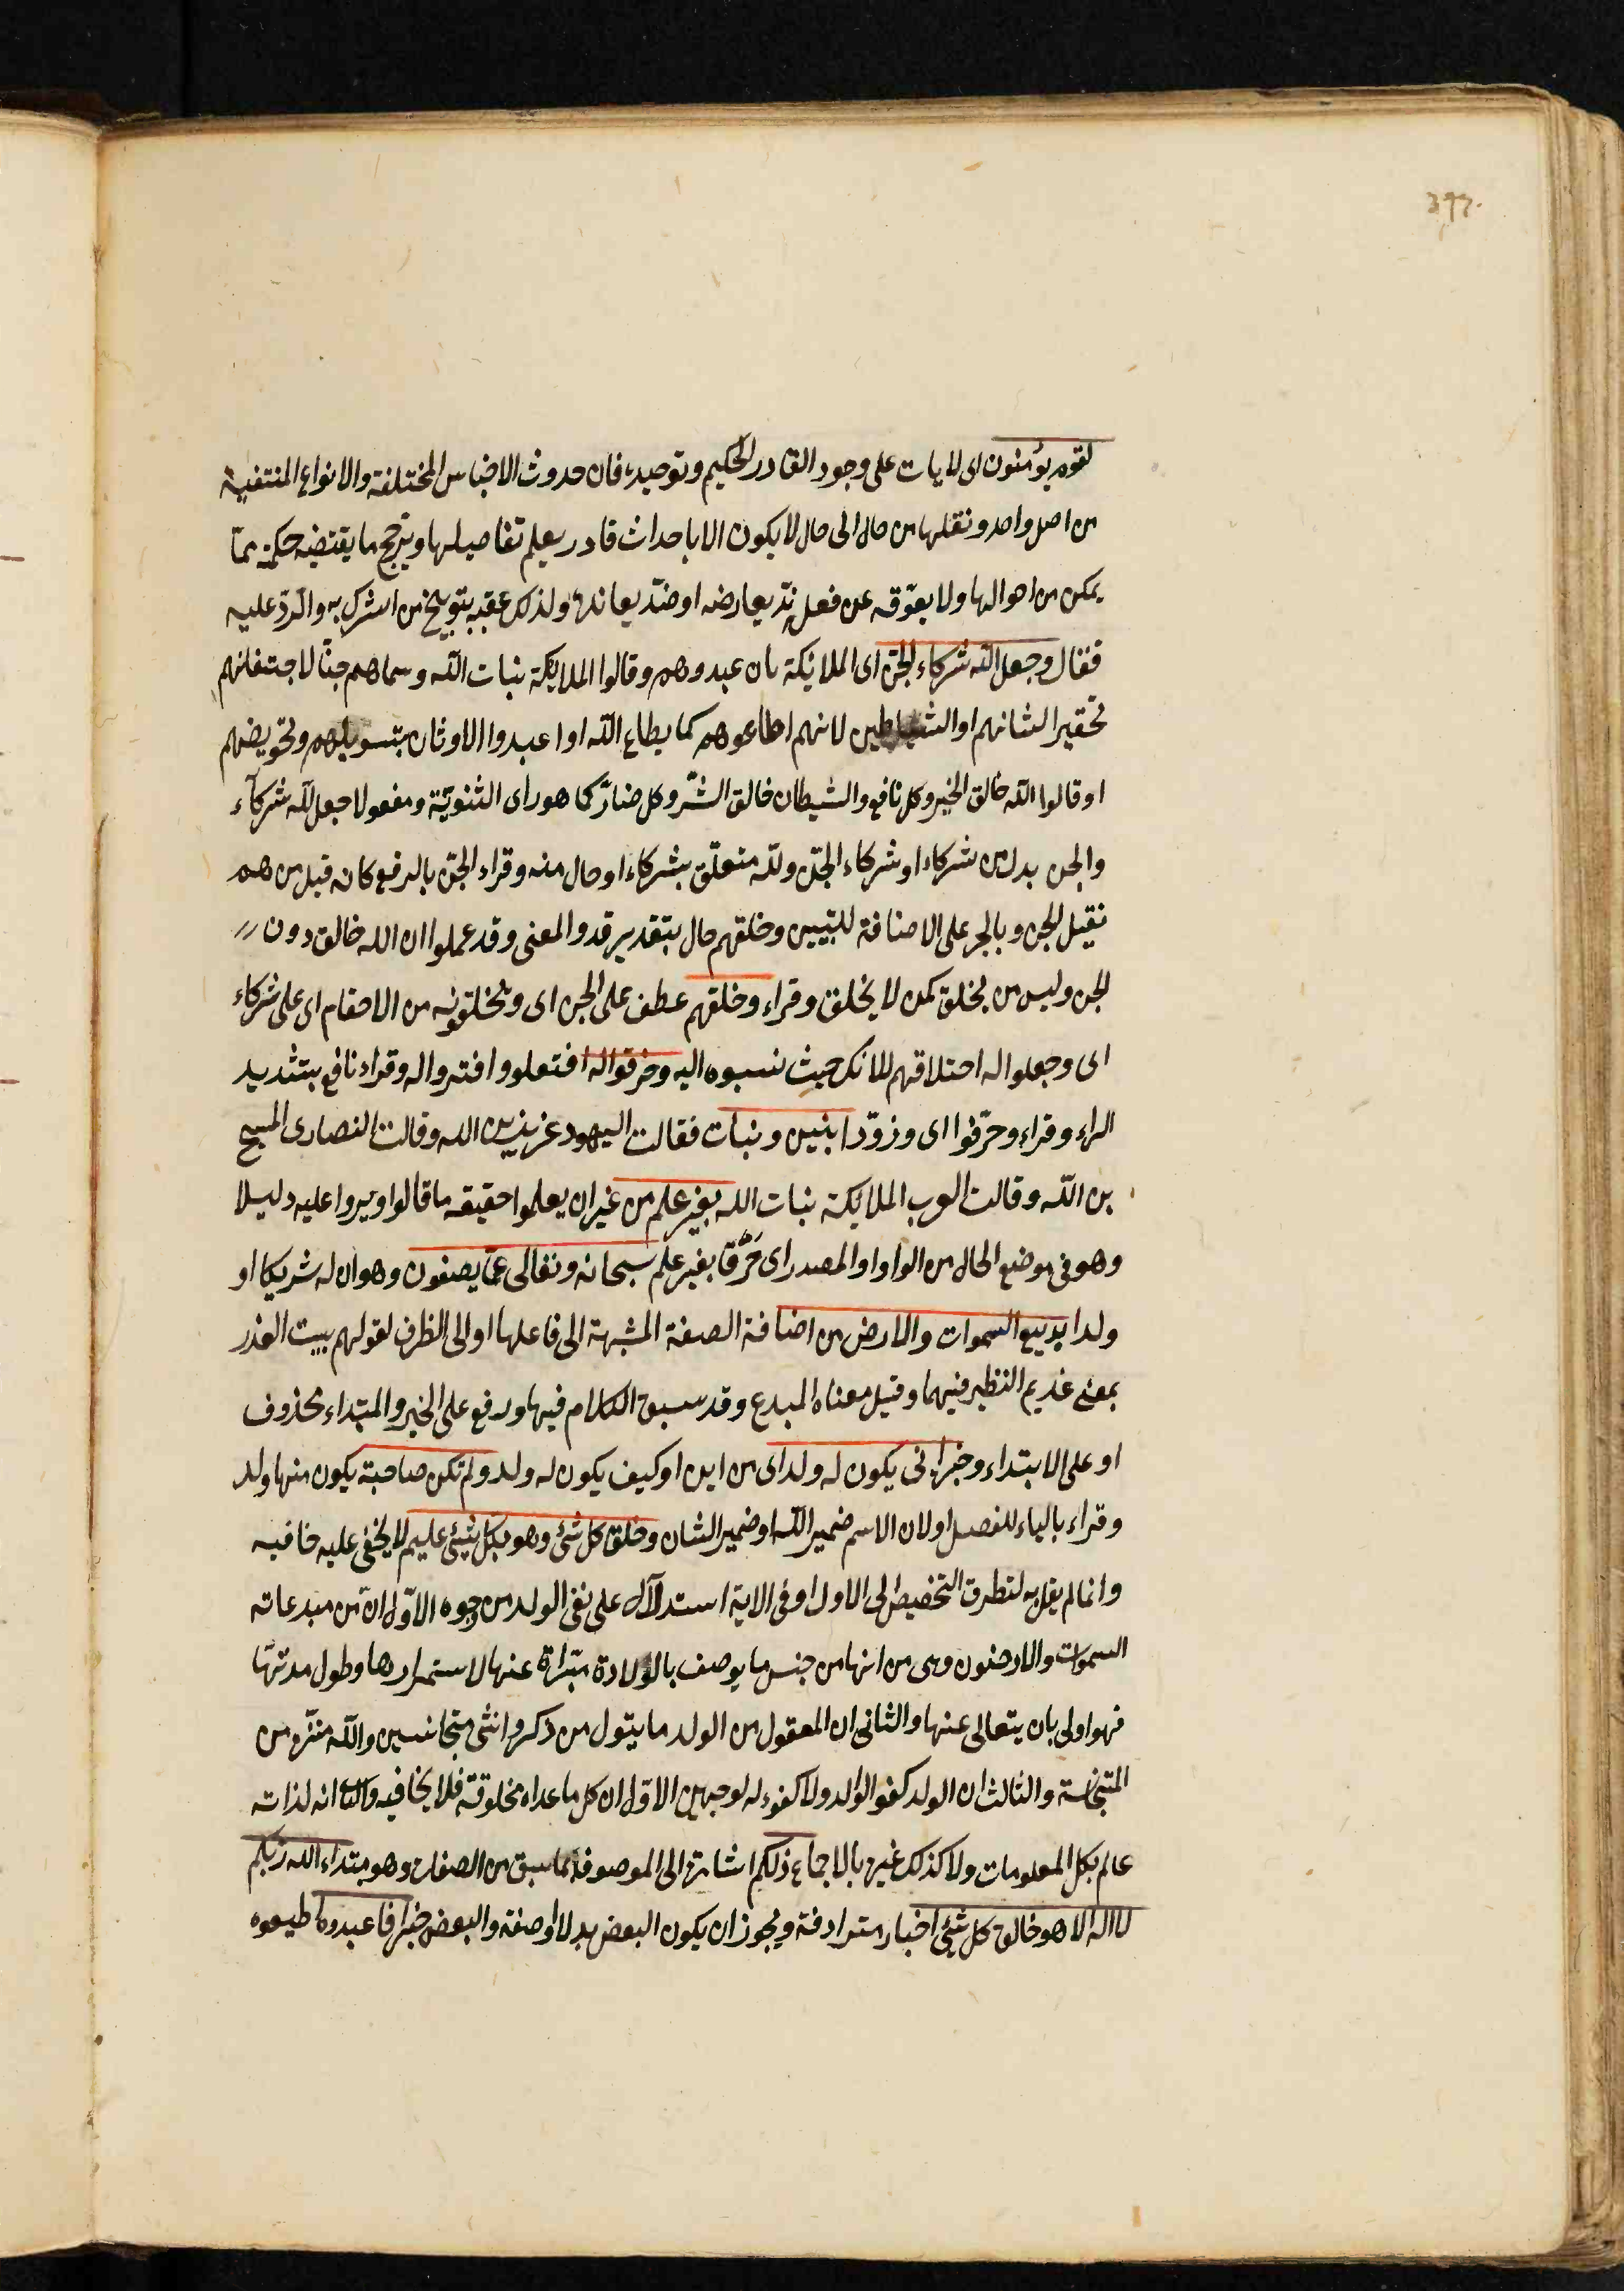 393
لقوم يؤمنون اى لايات على وجود القادر الحكيم وتوحيده فان حدوث الاجناس المختلفة والانواع المنتفية
من اصل واحد ونقلها من حال الى حال لا يكون الا باحداث قادر يعلم تفاصيلها ويرجح ما يقتضيه حكمته مما
يمكن من احوالها ولا يعوّقه عن فعله ندّ يعارضه او ضدّ يعانده ولذلك عقّبه بتوبيخ من اشرك به والردّ عليه
فقال وجعل الله شركاء الجن اى الملائكة بان عبدوهم وقالوا الملايكة بنات الله وسماهم جنّا لاجتنانهم
تحقيرا لشانهم او الشياطين لانهم اطاعوهم كما يطاع الله او اعبدوا الاوثان بتسويلهم وتحويضهم
او قالوا الله خالق الخير وكل نافع والشيطان خالق الشّر وكل ضارّ كما هو راى الثنويّة ومفعولا جعل لله شركآء
والجن بدل من شركاء او شركاء الجنّ ولله متعلّق بشركاء او حال منه وقراء الجنّ بالرفع كانه قيل من هم
فقيل الجن وبالجر على الاضافة للتبيين وخلقهم حال بتقدير قد والمعنى وقد عملوا ان الله خالق دون
الجن وليس من يخلق كمن لا يخلق وقراء وخلقهم عطف على الجن اى وتخلقونه من الاصنام اى على شركاء
اى وجعلوا له اختلاقهم للافك حيث نسبوه اليه وخرقوا له افتعلوا وافتروا له وقراء نافع بتشديد
الراء وقراء وحرّفوا اى وزوّدا بنين وبنات فقالت اليهود عزير بن الله وقالت النصارى المسيح
بن الله وقالت العرب الملايكة بنات الله بغير علم من غير ان يعلموا حقيقه ما قالوا ويروا عليه دليلا
وهو فى موضع الحال من الواو او المصدر اى خرقا بغير علم سبحانه وتعالى عمّا يصفون وهو ان له شريكا او
ولدا بديع السموات والارض من اضافة الصفة المشبهة الى فاعلها او الى الظرف لقولهم بيت الغدر
بمعنى عديم النظير فيهما وقيل معناه المبدع وقد سبق الكلام فيها ورفع على الخبر والمبتداء محذوف
او على الابتداء وخبره انى يكون له ولد اى من اين او كيف يكون له ولد ولم تكن صاحبة يكون منها ولد
وقراء بالياء للفصل او لان الاسم ضمير الله او ضمير الشان وخلق كل شئ وهو بكل شئ عليم لا يخفى عليه خافيه
وانما لم يقل به لتطرق التخصيص الى الاول وفى الاية استدلال على نفى الولد من وجوه الاوّل انّ من مبدعاته
السموات والارضون وهى من انها من جنس ما يوصف بالولادة متبرّاة عنها لاستمرارها وطول مدّتها
فهو اولى بان يتعالى عنها والثانى ان المعقول من الولد ما يتول من ذكر وانثى متجانسين والله منزّه من
المتجانسة والثالث ان الولد كفو الوالد ولا كفوء له لوجهين الاوّل ان كل ما عداه مخلوقة فلا يخافيه والثانى انه لذاته
عالم بكل المعلومات ولا كذلك غيره بالاجماع ذلكم اشارة الى الموصوف بما سبق من الصفات وهو مبتداء الله ربكم
لا اله الا هو خالق كل شئ اخبار مترادفة ويجوز ان يكون البعض بدلا او صفة والبعض خبرا فاعبدوه اطيعوه